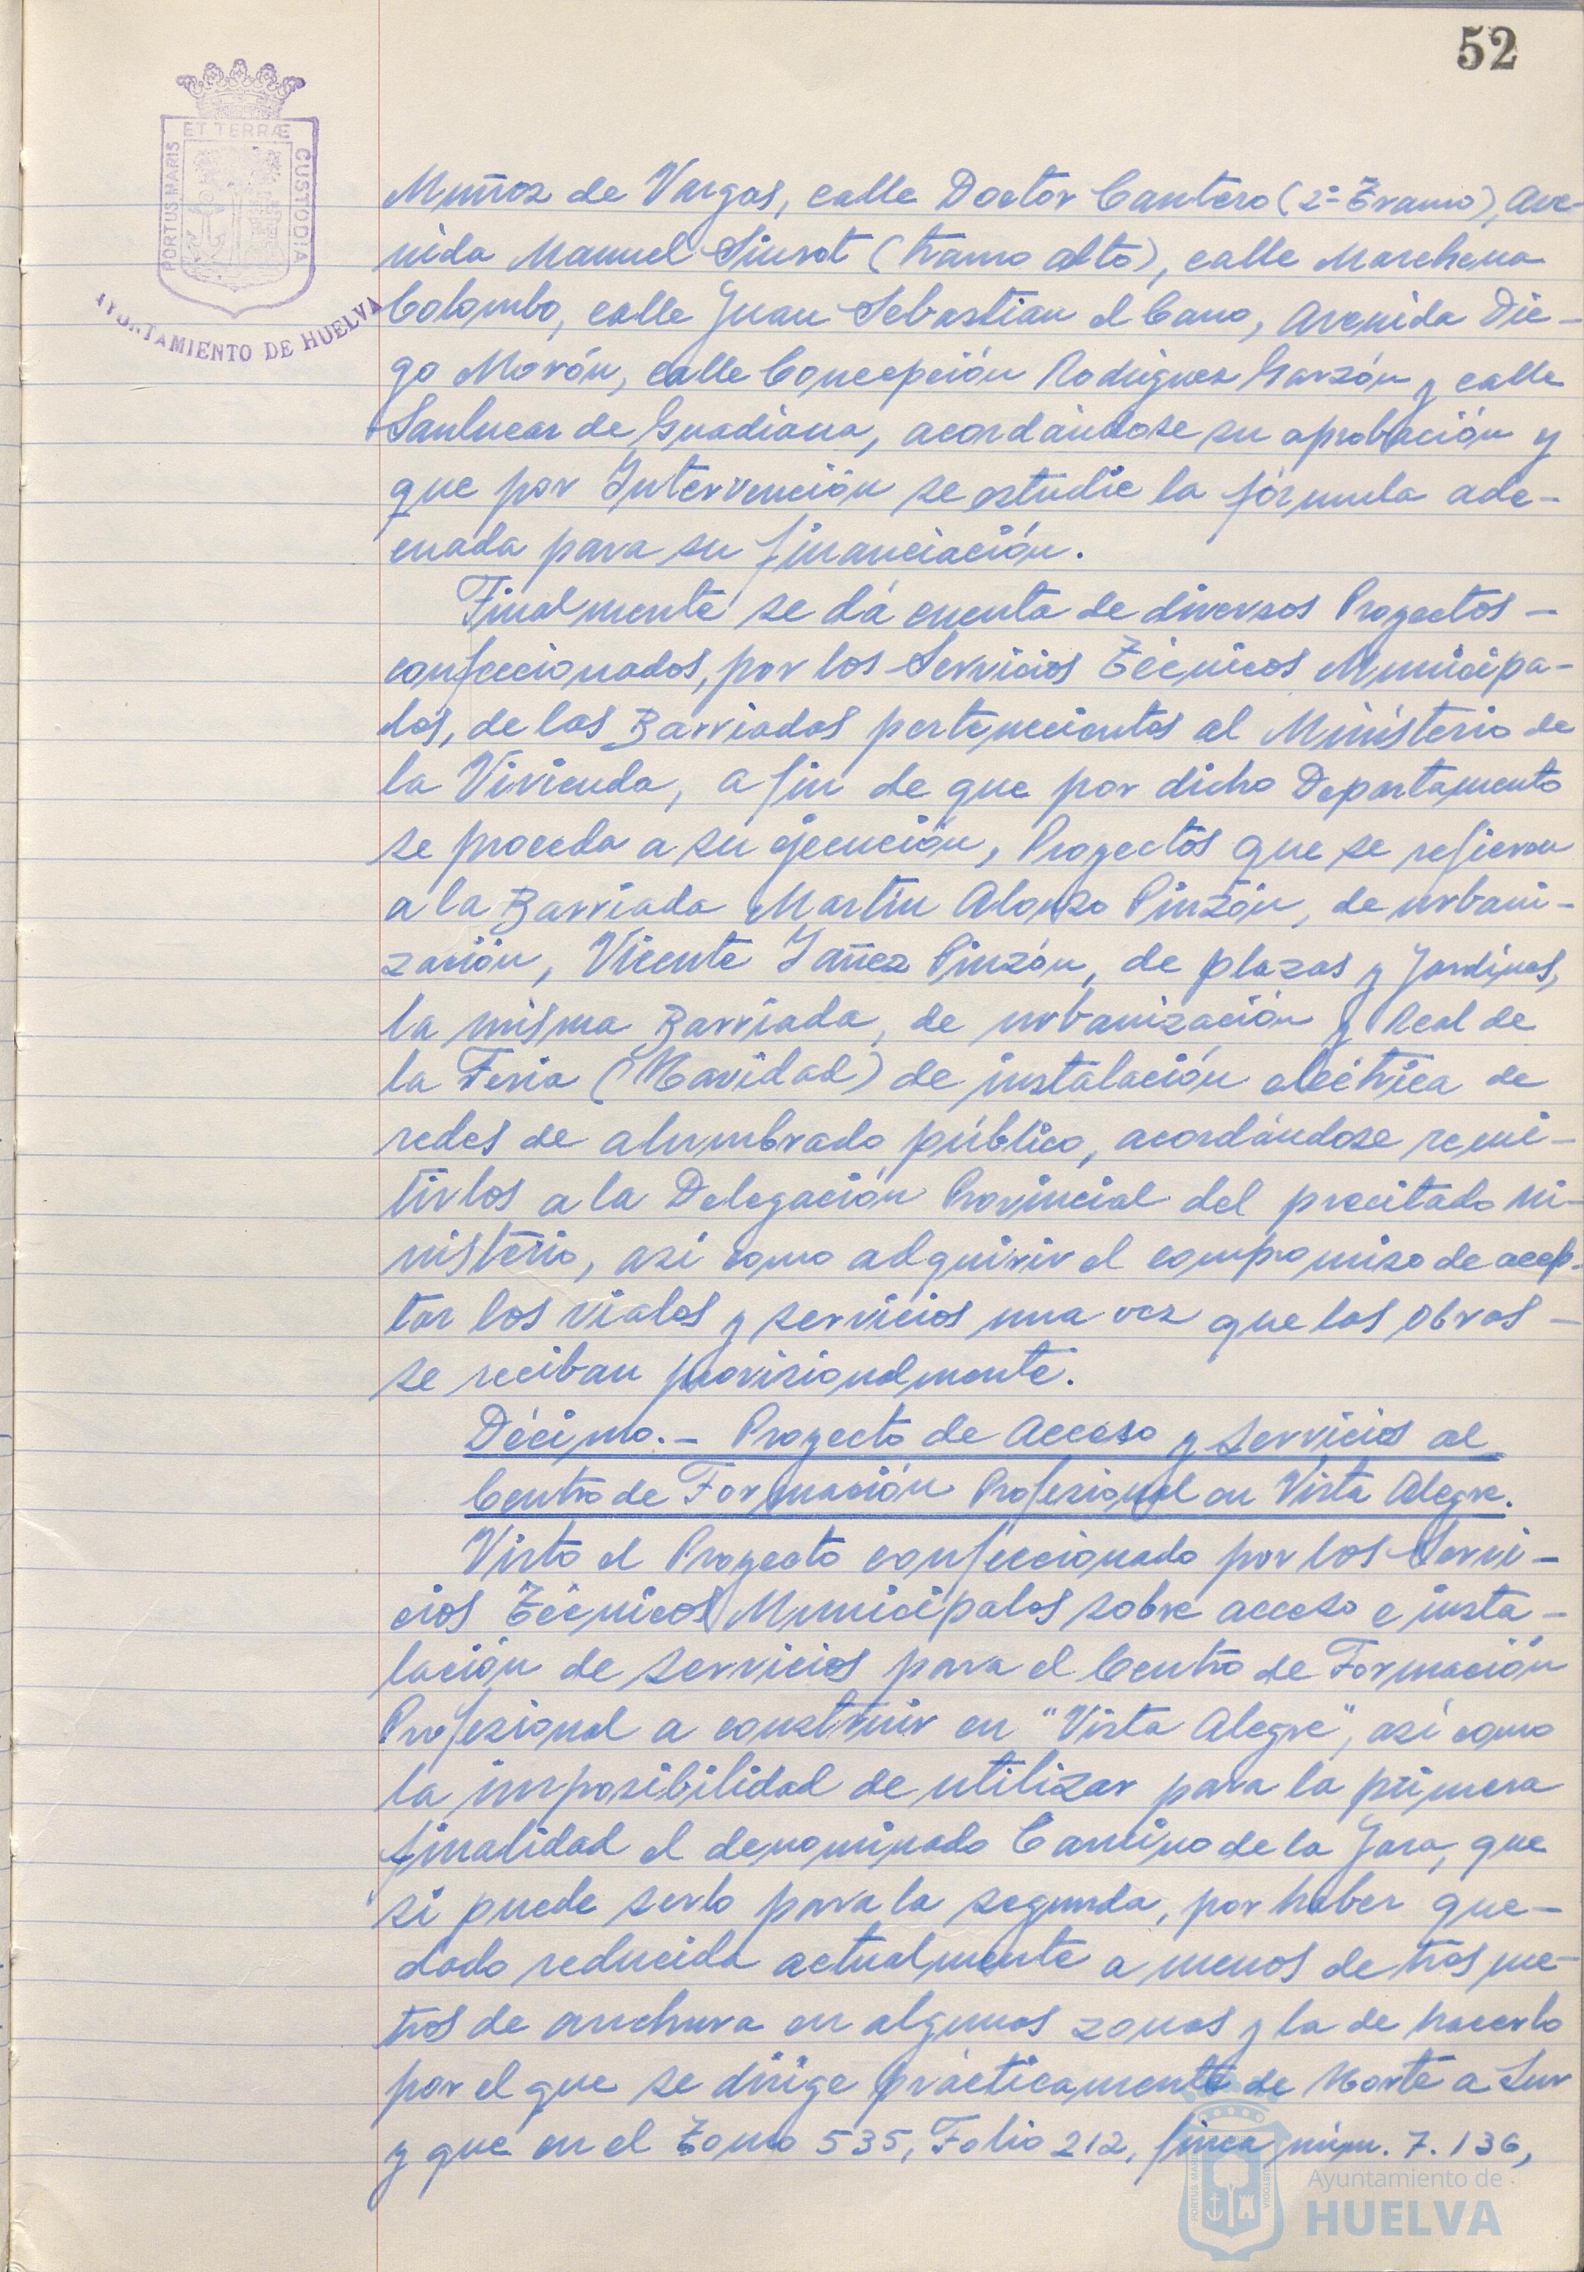 52
ET TERRÆ
PORTUS MARIS
CUSTODIA
AYUNTAMIENTO DE HUELVA
Muñoz de Vargas, calle Doctor Cantero (2º Tramo), Ave-
nida Manuel Siurot (tramo alto), calle Marchena
Colombo, calle Juan Sebastian el Cano, Avenida Die-
go Morón, calle Concepción Rodriguez Garzón y calle
Sanlucar de Guadiana, acordándose su aprobación y
que por Intervención se estudie la fórmula ade-
cuada para su financiación.
Finalmente se dá cuenta de diversos Proyectos -
confeccionados, por los Servicios Técnicos Municipa-
les, de las Barriadas pertenecientes al Ministerio de
la Vivienda, a fin de que por dicho Departamento
se proceda a su ejecución, Proyectos que se refieren
a la Barriada Martín Alonso Pinzón, de urbani-
zación, Vicente Yañez Pinzón, de plazas y Jardines,
la misma Barriada, de urbanización y Real de
la Feria (Navidad) de instalación eléctrica de
redes de alumbrado público, acordándose remi-
tirlos a la Delegación Provincial del precitado Mi-
nisterio, así como adquirir el compromiso de acep-
tar los viales y servicios una vez que las obras -
se reciban provisionalmente.
Décimo.- Proyecto de Acceso y Servicios al
Centro de Formación Profesional en Vista Alegre.
Visto el Proyecto confeccionado por los Servi-
cios Técnicos Municipales sobre acceso e insta-
lación de servicios para el Centro de Formación
Profesional a construir en "Vista Alegre", así como
la imposibilidad de utilizar para la primera
finalidad el denominado Camino de la Jara, que
si puede serlo para la segunda, por haber que-
dado reducida actualmente a menos de tres me-
tros de anchura en algunas zonas y la de hacerlo
por el que se dirige prácticamente de Norte a Sur
y que en el Tomo 535, Folio 212, finca núm. 7.136,
Ayuntamiento de
HUELVA